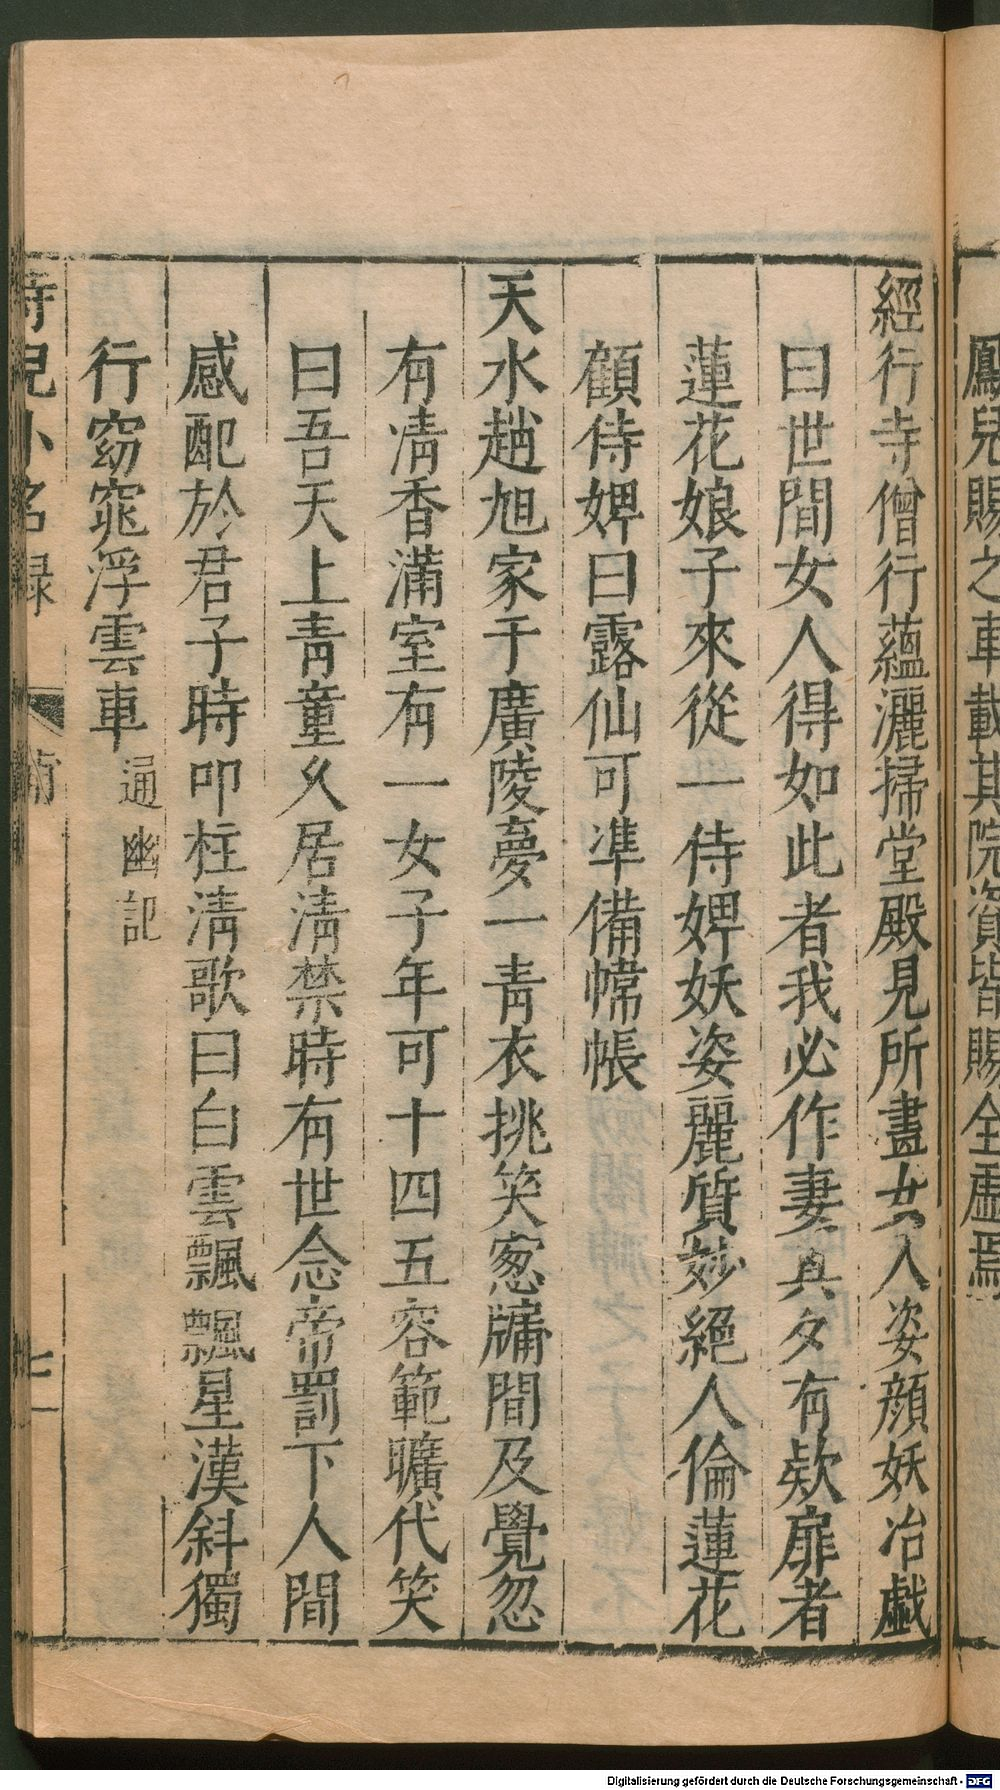 鳳兒賜之車載其院資皆賜全虛焉
經行寺僧行蘊灑掃堂殿見所畫女人姿顏妖冶戲
曰世間女人得如此者我必作妻其夕有欵扉者
蓮花娘子來從一侍婢妖姿麗質妙絕人倫蓮花
顧侍婢曰露仙可準備幃帳
天水趙旭家于廣陵夢一青衣挑笑窻牖間及覺忽
有清香滿室有一女子年可十四五容範曠代笑
曰吾天上青童久居清禁時有世念帝罰下人間
感配於君子時叩柱清歌曰白雲飄飄星漢斜獨
行窈窕浮雲車 通幽記
侍兒小名錄
Digitalisierung gefördert durch die Deutsche Forschungsgemeinschaft - DFG